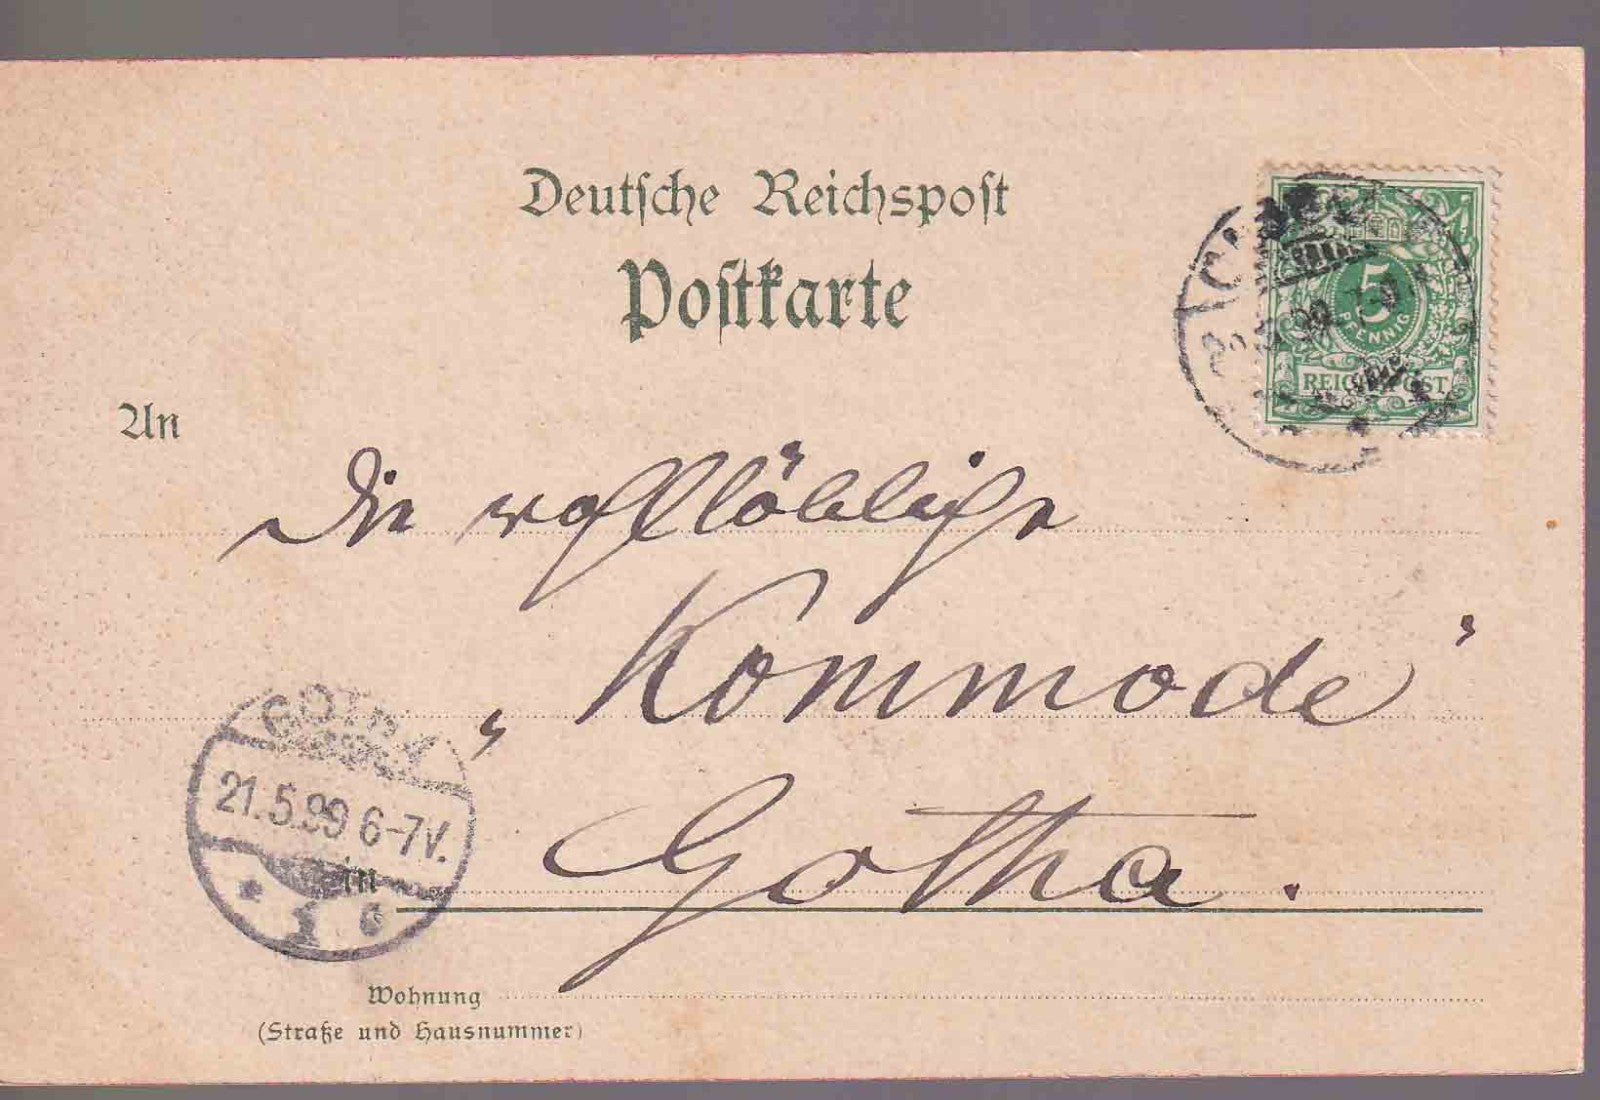 Deutsche Reichspost
Postkarte
5
PFENNIG
REICHSPOST
An
Die wohllöbliche
„Kommode"
Gotha.
GOTHA
21.5.99 6-7V.
in
Wohnung
(Straße und Hausnummer)